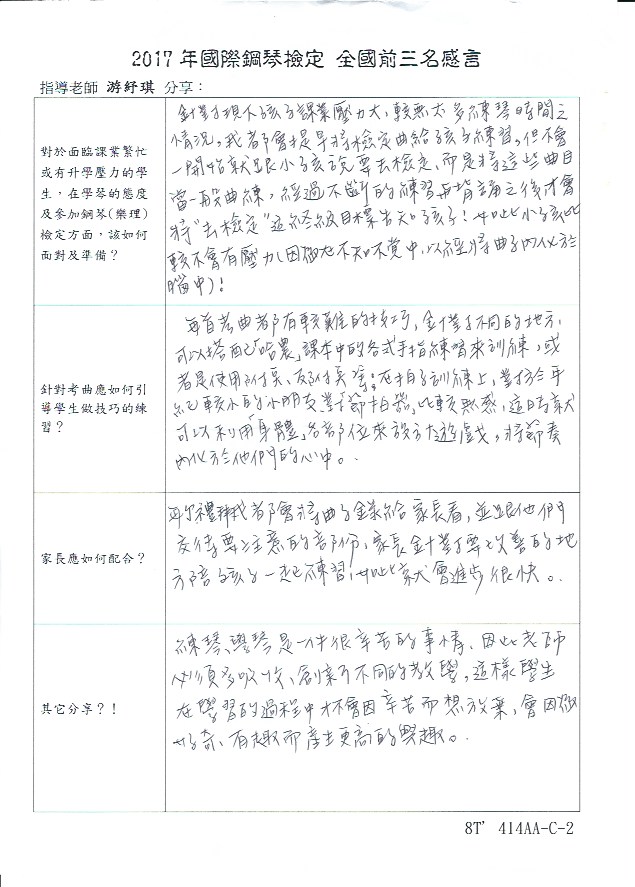 2017 年國際鋼琴檢定 全國前三名感言
指導老師 游紓琪 分享：
對於面臨課業繁忙
或有升學壓力的學
生，在學琴的態度
及參加鋼琴(樂理)
檢定方面，該如何
面對及準備？
針對現今孩子課業壓力大，較無太多練琴時間之
情況，我都會提早將檢定曲給孩子練習，但不會
一開始就跟小孩說要去檢定，而是將這些曲目
當一般曲練，經過不斷的練習再背譜之後才會
將"去檢定"這終極目標告知孩子！如此小孩比
較不會有壓力(因他也不知不覺中，以經將曲子內化於
腦中)！
針對考曲應如何引
導學生做技巧的練
習？
每首考曲都有較難的技巧，針對不同的地方，
可以搭配「哈農」課本中的各式手指練習來訓練，或
者是使用附長、反附長等；在拍子訓練上，對於年
紀較小的小朋友對節拍器比較無感，這時就
可以利用「身體」各部位來設計遊戲，將節奏
內化於他們的心中。
家長應如何配合？
每次禮拜我都會將曲子錄給家長看，並跟他們
交待要注意的部份，家長針對要改善的地
方陪孩子一起練習，如此就會進步很快。
其它分享？！
練琴、學琴是一件很辛苦的事情，因此老師
必須多吸收、創新不同的教學，這樣學生
在學習的過程中才不會因辛苦而想放棄，會因
好奇、有趣而產生更高的興趣。
8T' 414AA-C-2